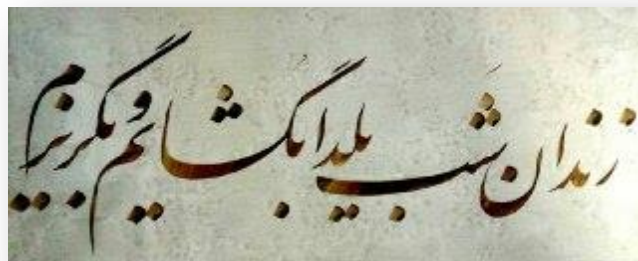 زندان شب یلدا بگشایم و بگریزم